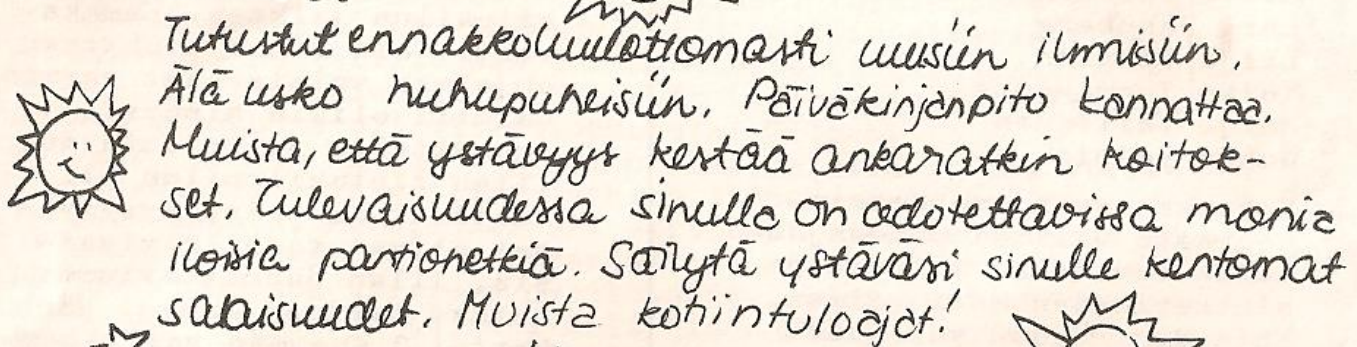 Tutustut ennakkoluulottomasti uusiin ihmisiin.
Älä usko huhupuheisiin. Päiväkirjanpito kannattaa.
Muista, että ystävyys kestää ankaratkin koitok-
set. Tulevaisuudessa sinulla on odotettavissa monia
iloisia partioretkiä. Säilytä ystäväsi sinulle kertomat
salaisuudet. Muista kotiintuloajat!